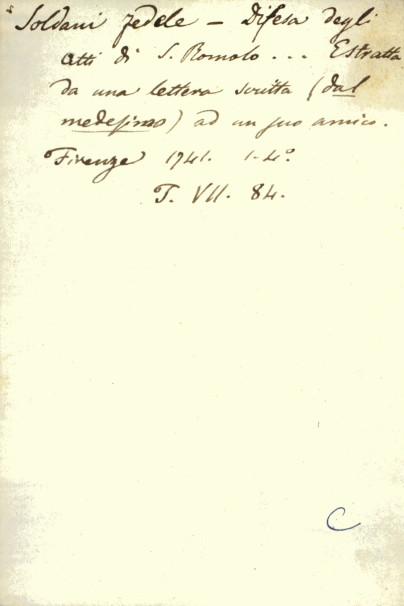 Soldani fedele – Difesa degli
atti di S. Romolo ... Estratta
da una lettera scritta (dal
medesimo) ad un suo amico.
Firenze 1741. 1-4°.
T. VII. 84.
C